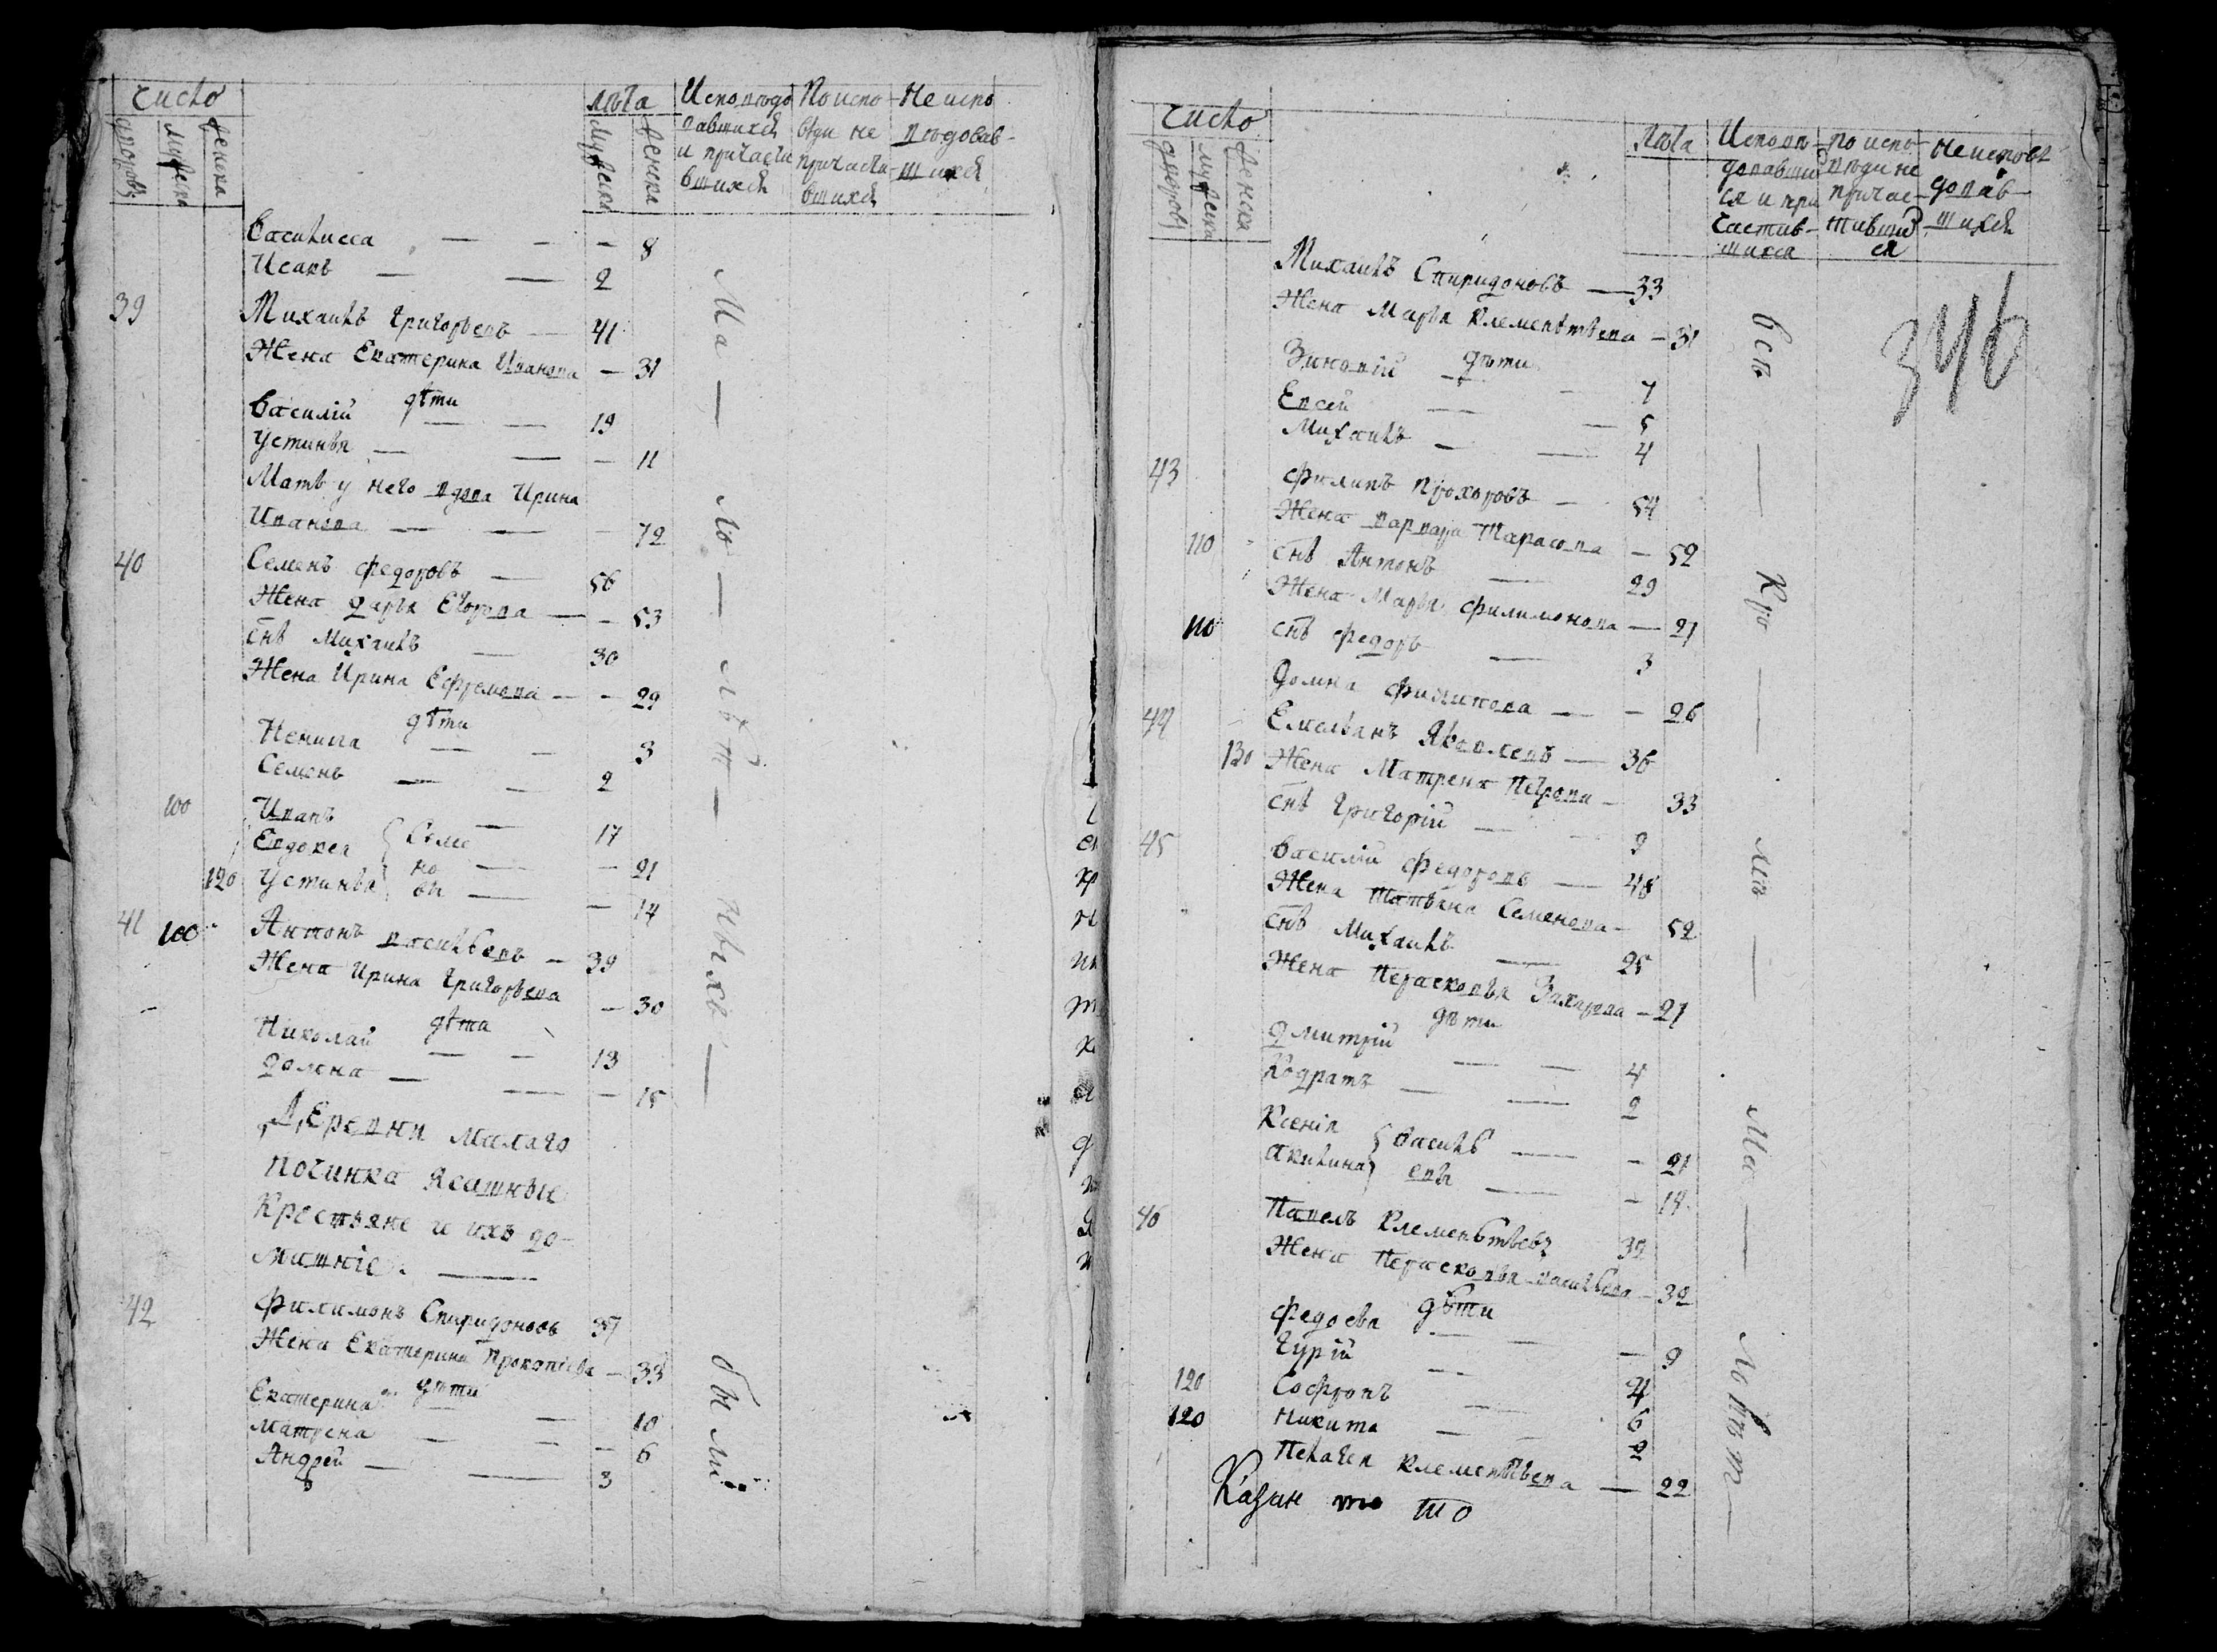 число
дворовъ
мужеска
женска
лѣта
мужеска
женска
Исповѣдо
вавшихся
и причасти
вшихся
По испо
вѣди не
причасти
вшихся
Не испо
вѣдовав-
шихся
Василисса — - - 8
Исакъ — — 2
39 Михаилъ Григорьевъ — 41
Жена Екатерина Иванова — 31
дѣти
Василій — — 19
Устинья — — - 11
Мать у него вдова Ирина
Иванова — — - 72
40 Семенъ Федоровъ — 56
Жена Дарья Егорова — - 53
снъ Михаилъ — 30
Жена Ирина Ефремова — - 29
дѣти
Ненила — - 3
Семенъ — - 2
100 Иванъ — 17
Евдокея { Семе — - 21
но
120 Устинья вы — - 14
41 100 Антонъ Васильевъ — 39
Жена Ирина Григорьева - 30
дѣти
Николай — - 13
Домна — — - 15
Деревни Малаго
Починка Ясашные
Крестьяне и ихъ до-
машніе. —
42 Филимонъ Спиридоновъ 37
Жена Екатерина Прокопіева - 33
дѣти
Екатерина — — 10
Матрена — - - 6
Андрей — — 3
Ма — ло — лѣт — ныхъ —
были
число
дворовъ
мужеска
женска
лѣта
Исповѣ-
довавши
ся и при
частив-
шихса
по испо-
вѣди не
причас-
тивши
ся
Не исповѣ
довав-
шихся
346
Михаилъ Спиридоновъ — 33
Жена Марья Клементьева — 31
дѣти
Зиновій — - 7
Евсей — - 5
Михаилъ - — 4
43 Филипъ Прохоровъ — 54
Жена Варвара Тарасова — 52
110 снъ Антонъ — 29
Жена Марья Филимонова — 21
110 снъ Федоръ — 3
Домна Филипова — - 26
44 Емельянъ Яковлевъ — 36
130 Жена Матрена Петрова - 33
снъ Григорій — - 9
45 Василій Федоровъ — 48
Жена Татьяна Семенова - 52
снъ Михаилъ — 25
Жена Перасковья Захарова - 21
дѣти
Дмитрій — — 4
Кодратъ — — 2
Ксенія { Василь — - 21
Акилина } евы — - 14
46 Павелъ Клементьевъ 32
Жена Перасковья Васильева - 32
дѣти
Федосья — — - 9
Гурій —
120 Софронъ — 4
120 Никита — — 6
2
Пелагея Клементьева — 22
Казан то то
Всѣ — Кро — мѣ — Ма — лолѣт —